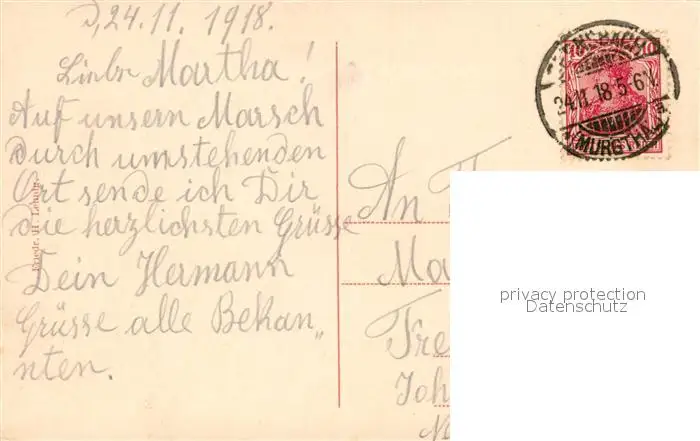 D, 24.11.1918.
Liebe Martha!
Auf unsern Marsch
durch umstehenden
Ort sende ich Dir
die herzlichsten Grüsse
Dein Hermann
Grüsse alle Bekan„
nten.
An
24.11.18.5-6N.
(MURGTHAL)
privacy protection
Datenschutz